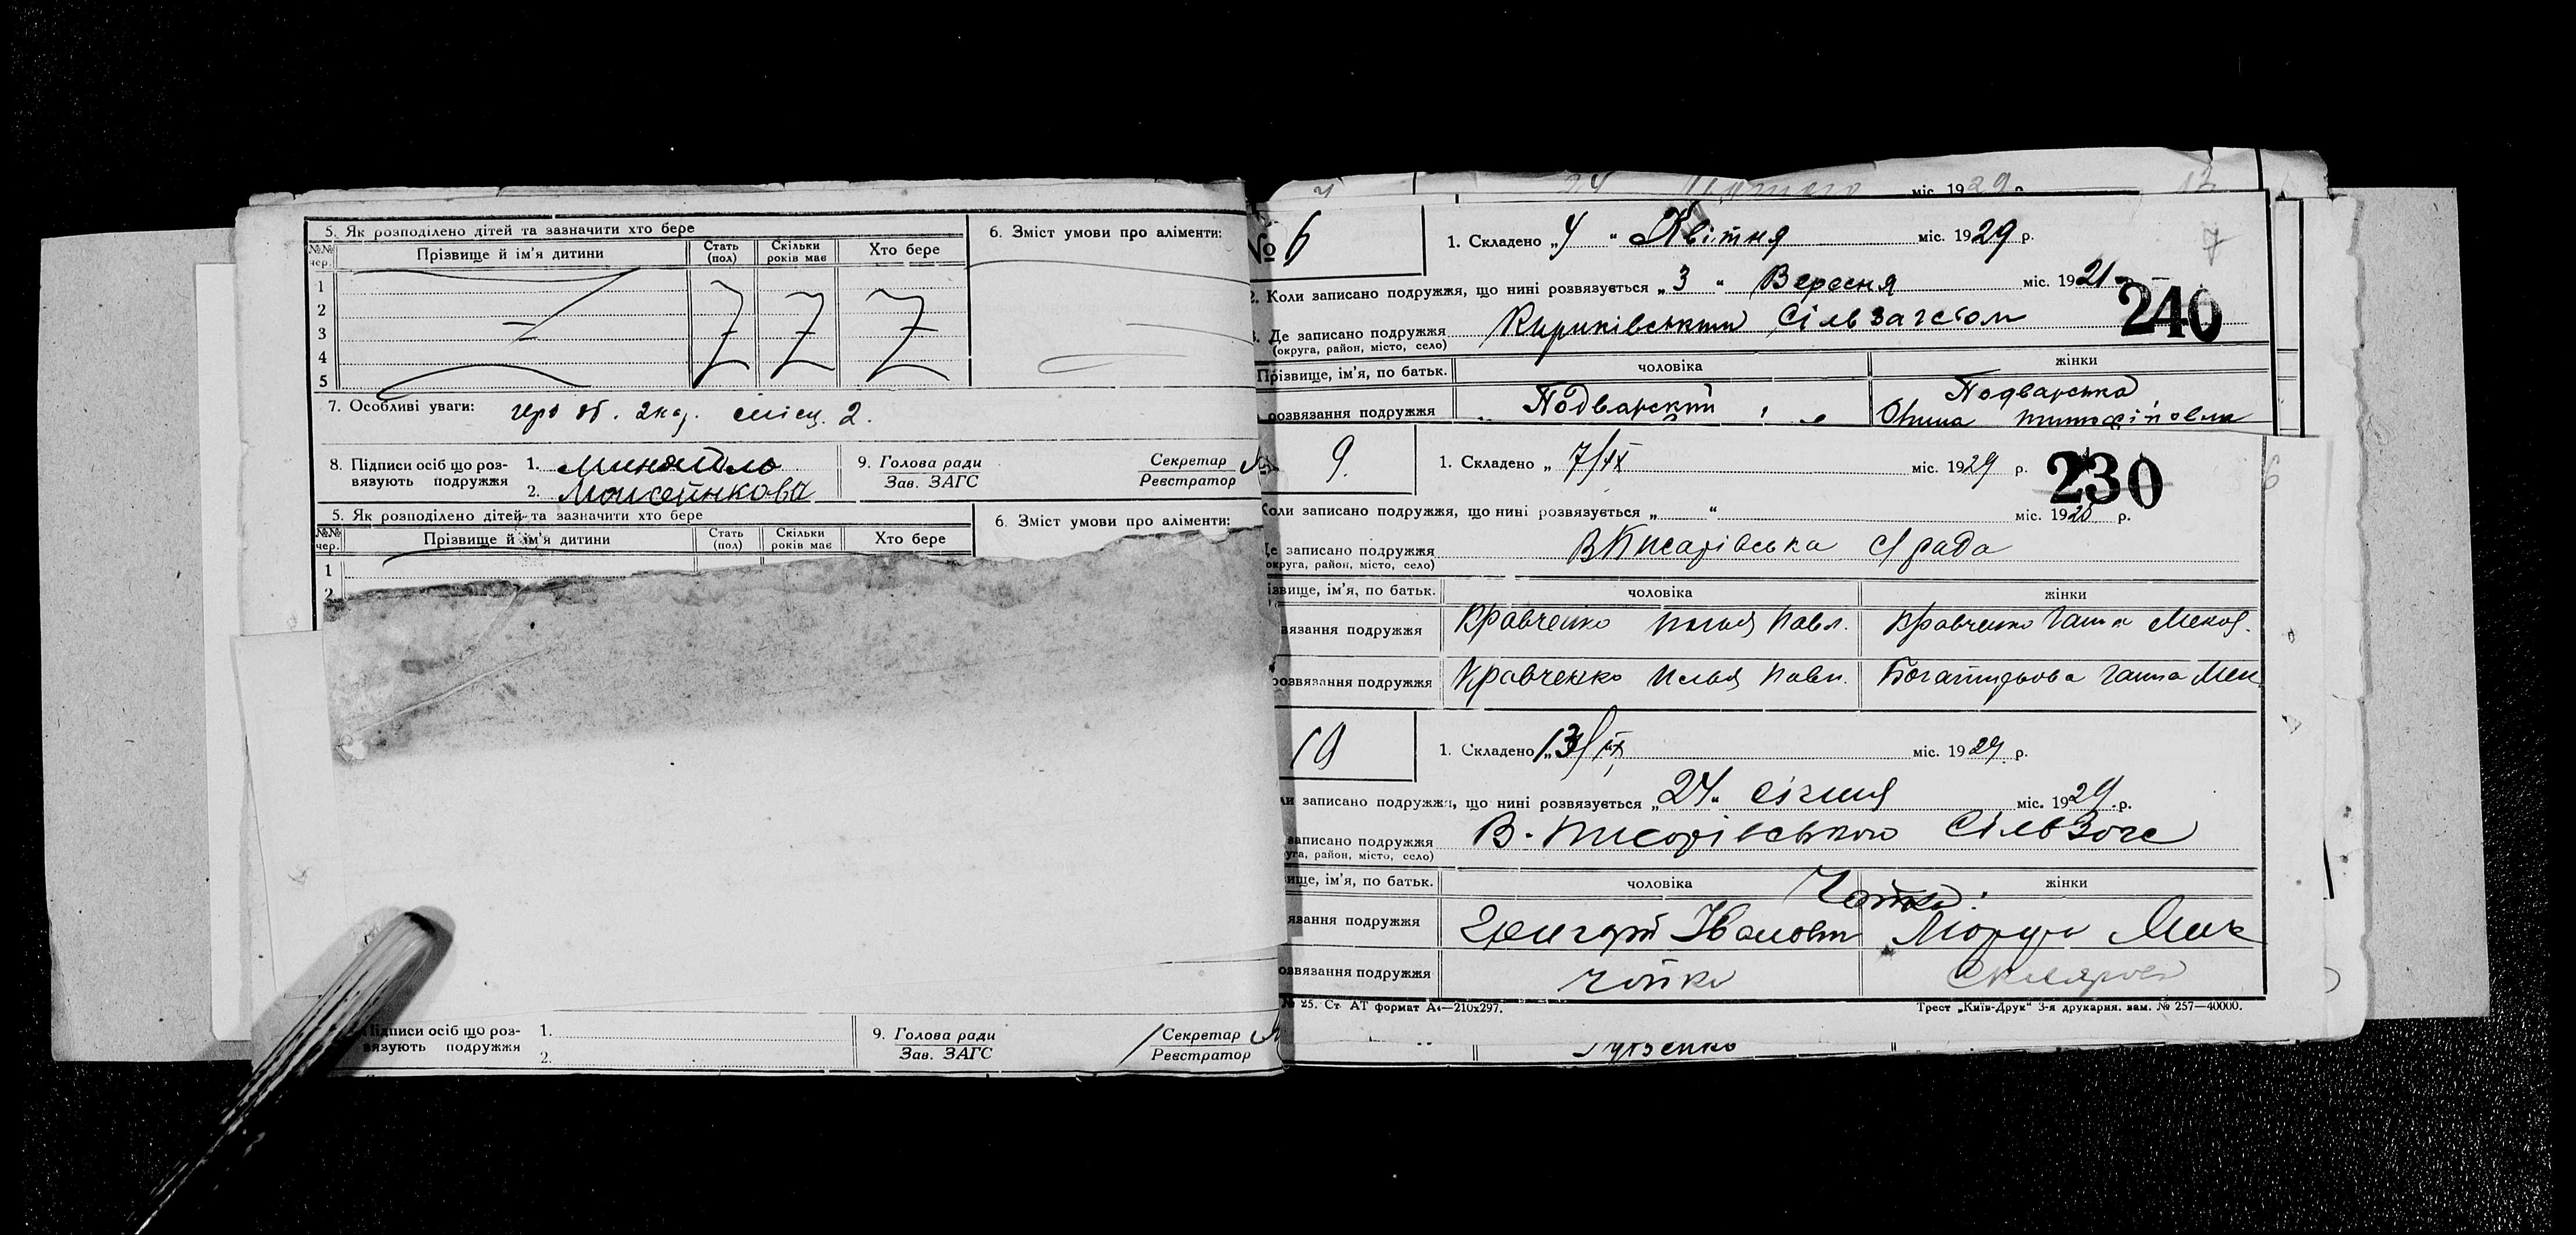 5. Як розподілено дітей та зазначити хто бере
6. Зміст умови про аліменти:
№№ чер. Прізвище й ім'я дитини Стать (пол) Скільки років має Хто бере
1
2
3
4
5
7. Особливі уваги:
8. Підписи осіб що розвязують подружжя 1. Миняйло
2. Моисеєнкова
9. Голова ради Секретар
Зав. ЗАГС Реєстратор
5. Як розподілено дітей та зазначити хто бере
6. Зміст умови про аліменти:
№№ чер. Прізвище й ім'я дитини Стать (пол) Скільки років має Хто бере
1
2
Підписи осіб що роз-
вязують подружжя
1.
2.
9. Голова ради Секретар
Зав. ЗАГС Реєстратор
міс. 1929 р.
№ 6
1. Складено „4 “ Квітня міс. 1929 р.
7
2. Коли записано подружжя, що нині розвязується „3 “ Вересня міс. 1921
240
Де записано подружжя Кириківським Сільзагсом
(округа, район, місто, село)
Прізвище, ім'я, по батьк. чоловіка жінки
розвязання подружжя Подварський Подварська
9.
1. Складено „ 7/IX міс. 1929 р.
230
6
Коли записано подружжя, що нині розвязується „ “ міс. 1920 р.
Де записано подружжя В Писарівська с/рада
округа, район, місто, село)
ізвище, ім'я, по батьк. чоловіка жінки
вязання подружжя Кравченко Илья Павл. Кравченко Ганна
розвязання подружжя Кравченко Илья Павл. Богатирьова Ганна
10
1. Складено „13/IX міс. 1929 р.
ли записано подружжя, що нині розвязується „24 “ січня міс. 1929 р.
записано подружжя В. Писарівського Сільзагс
уга, район, місто, село)
ище, ім'я, по батьк. чоловіка жінки
язання подружжя Григорій Іванович
озвязання подружжя Чопко Склярова
№ 25. Ст. АТ формат А4—210х297.
Трест „Київ-Друк“ 3-я друкарня. зам. № 257—40000.